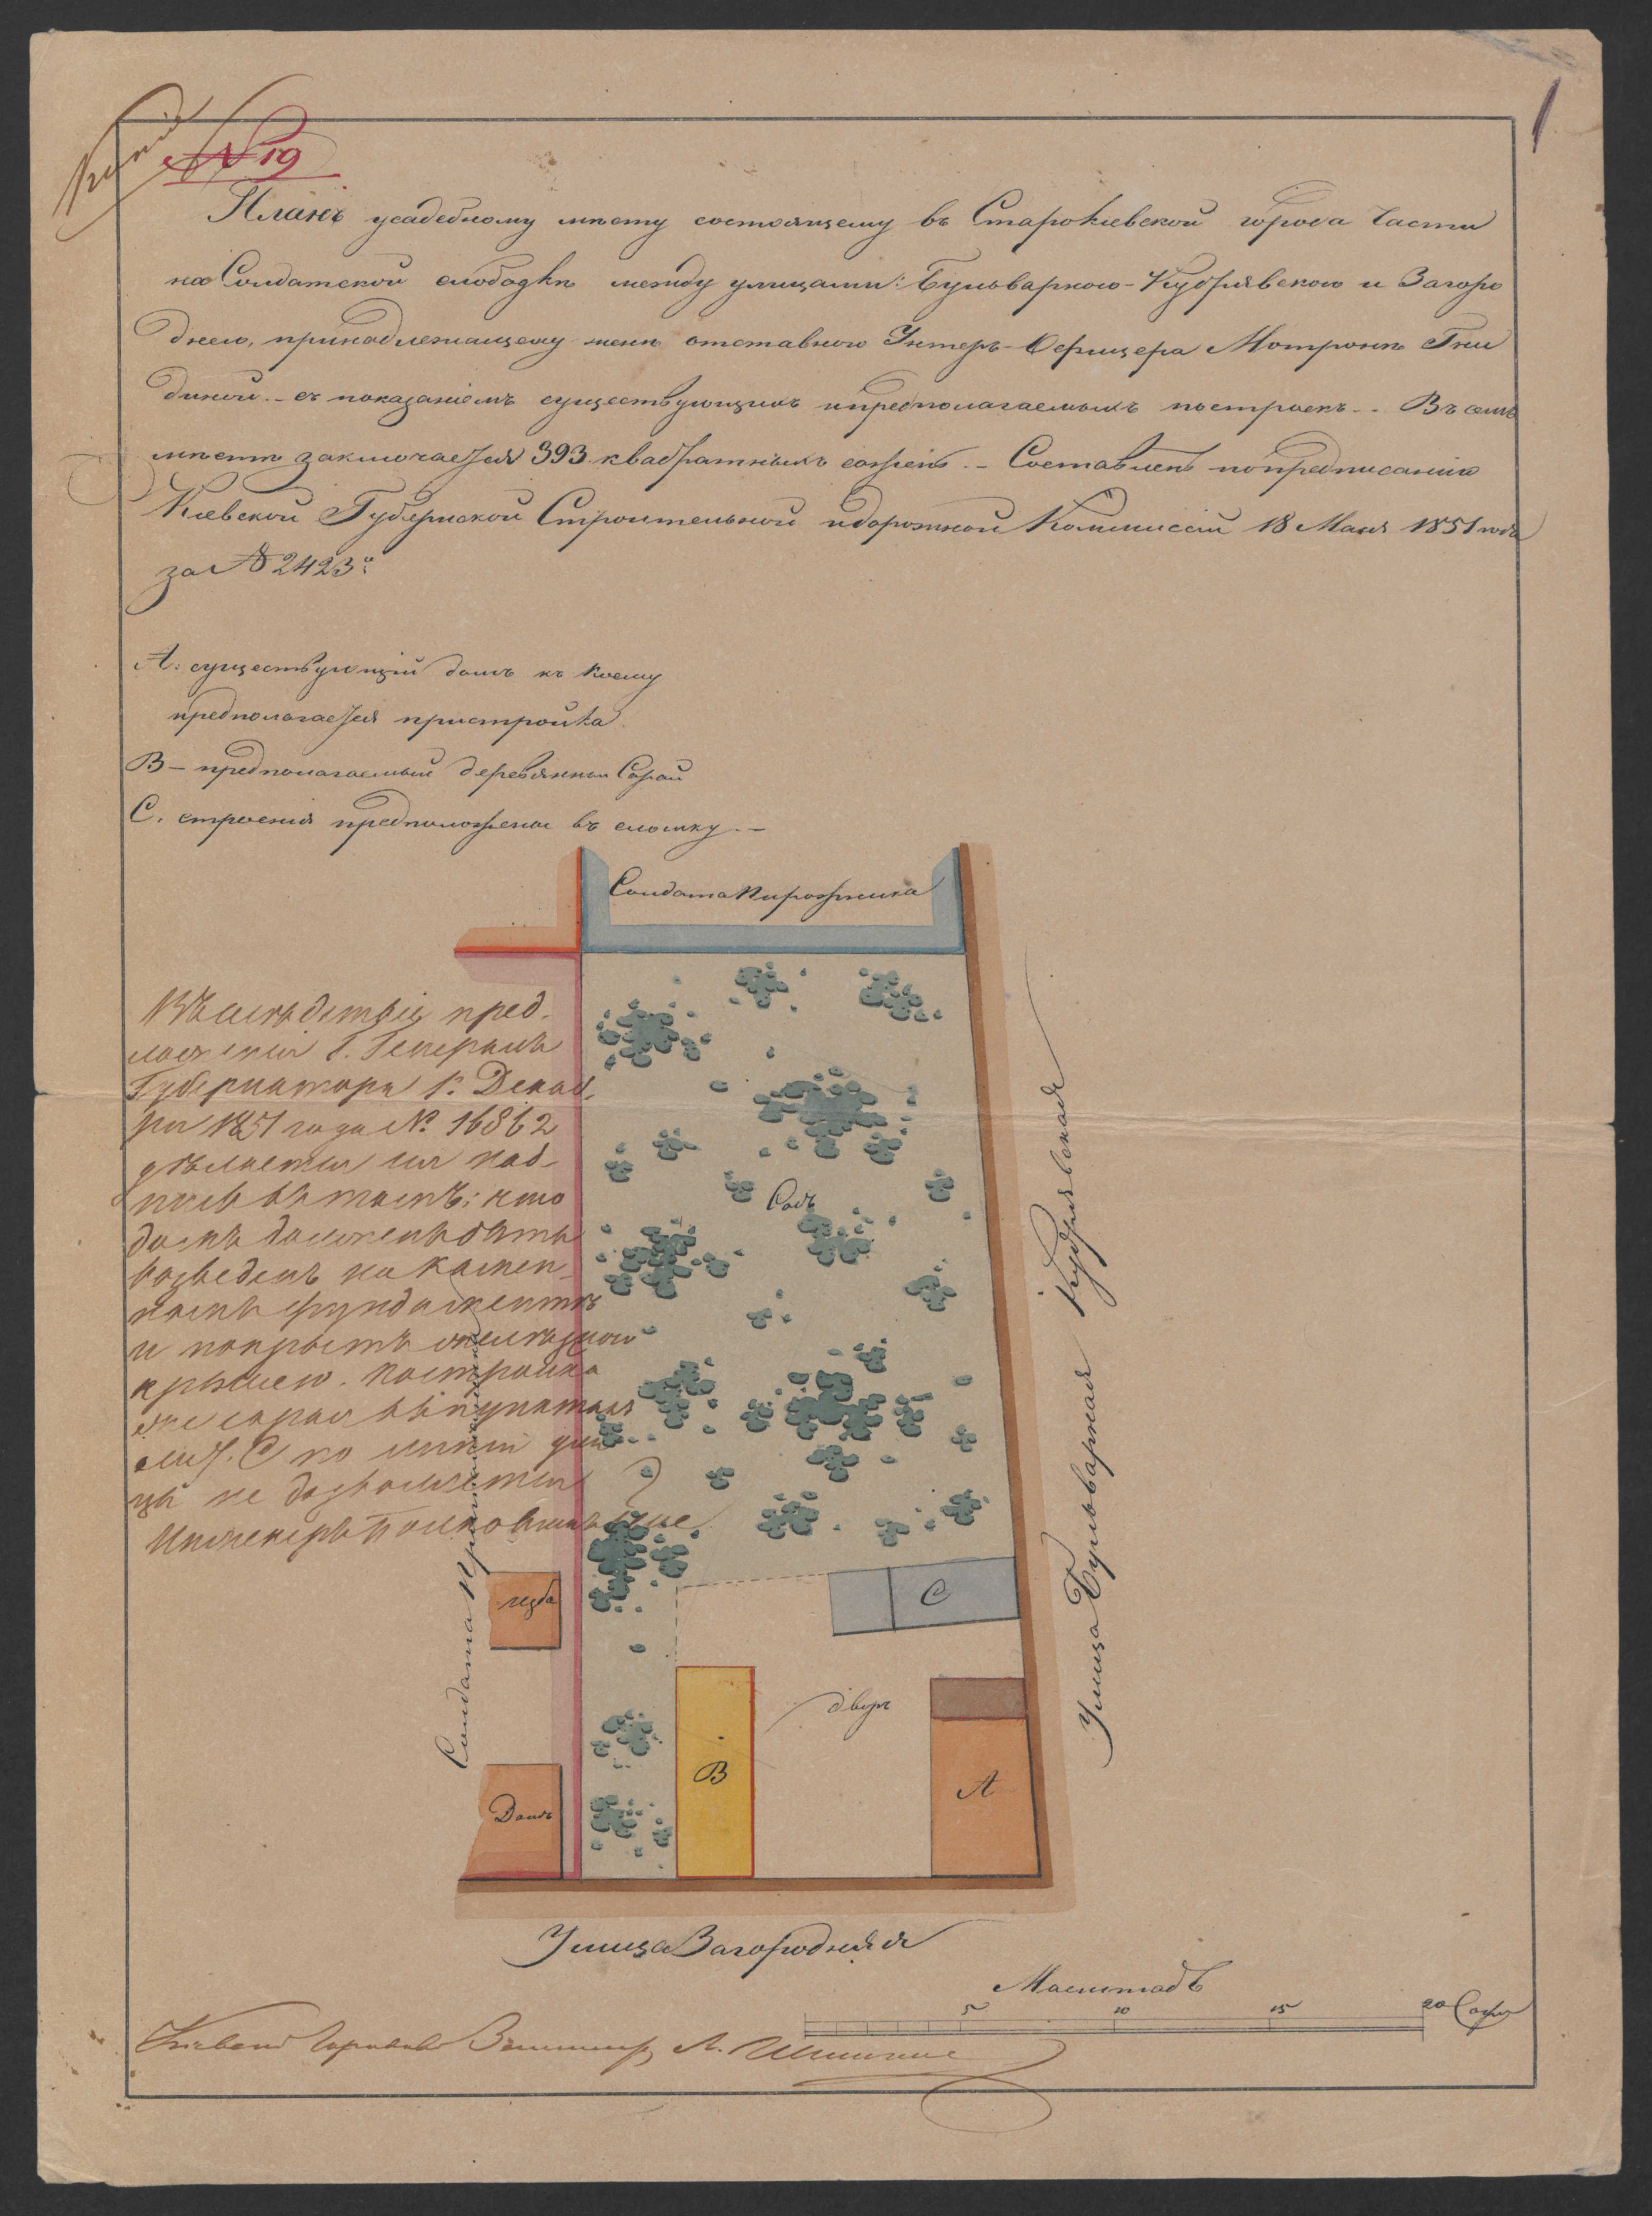 1
Копія
№ 19
Планъ усадебному мѣсту состоящему въ Старокіевской города части
на Солдатской слободкѣ между улицами: Бульварною-Кудрявскою и Загоро
днею, принадлежащему женѣ отставного Унтеръ-Офицера Мотронѣ Гни
диной. - съ показаніемъ существующихъ и предполагаемыхъ построекъ. - Въ семъ
мѣстѣ заключается 393 квадратныхъ сажень. - Составленъ по предписанію
Кіевской Губернской Строительной и дорожной Коммиссіи 18 Мая 1851 года
за № 2423.
А: существующій домъ къ коему
предполагается пристройка.
В - предполагаемый деревянный Сарай
С. строенія предположенные въ сломку. -
Солдата Пирожника
Въ слѣдствіе пред-
ложенія Г. Генералъ
Губернатора 1. Декаб-
ря 1851 года № 16862
дѣлается сія над-
пись въ томъ: что
домъ долженъ быть
возведенъ на камен-
номъ фундаментѣ
и покрытъ желѣзною
крышею. Постройка
же сарая
лит. С по линіи ули
цы не дозволяется
Инженеръ Полковникъ
Садъ
С
изба
дворъ
В
А
Домъ
Солдата
Улица Бульварная Кудрявская
Улица Загородняя
Масштабъ
5 10 15 20 Саж
Кіевской Городовой А.